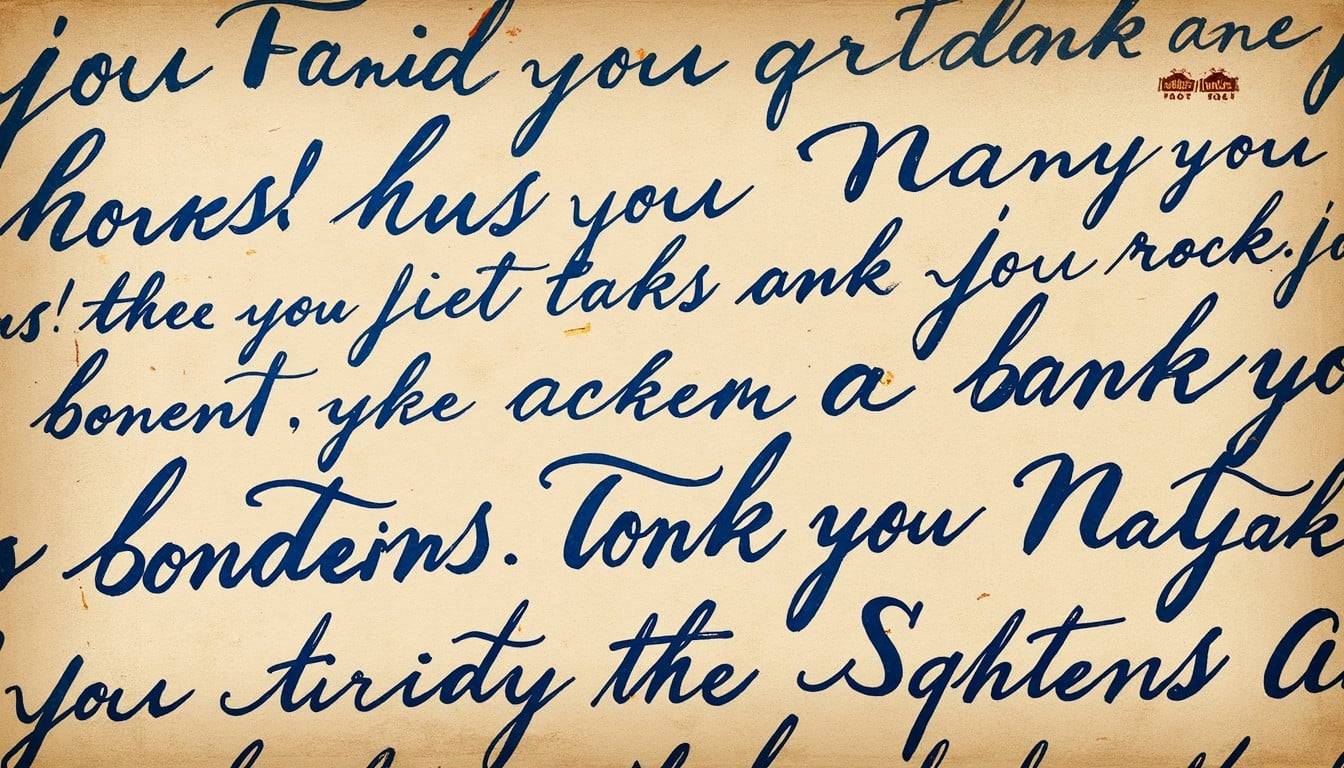 you Fanid you qrtdank ane
horks! hus you Nany you
us! thee you fiet taks ank you rock. jo
bonent, yke ackem a bank yo
bondeins. Tonk you Natyak
you tiridy the Sqhtens A